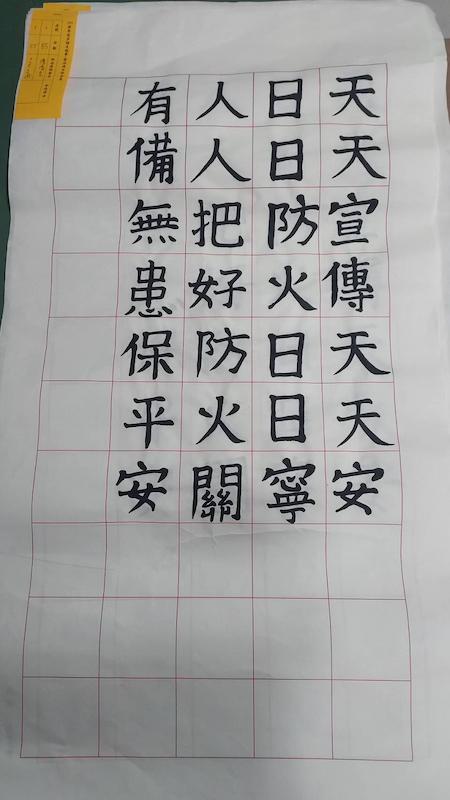 天天宣傳天天安
日日防火日日寧
人人把好防火關
有備無患保平安